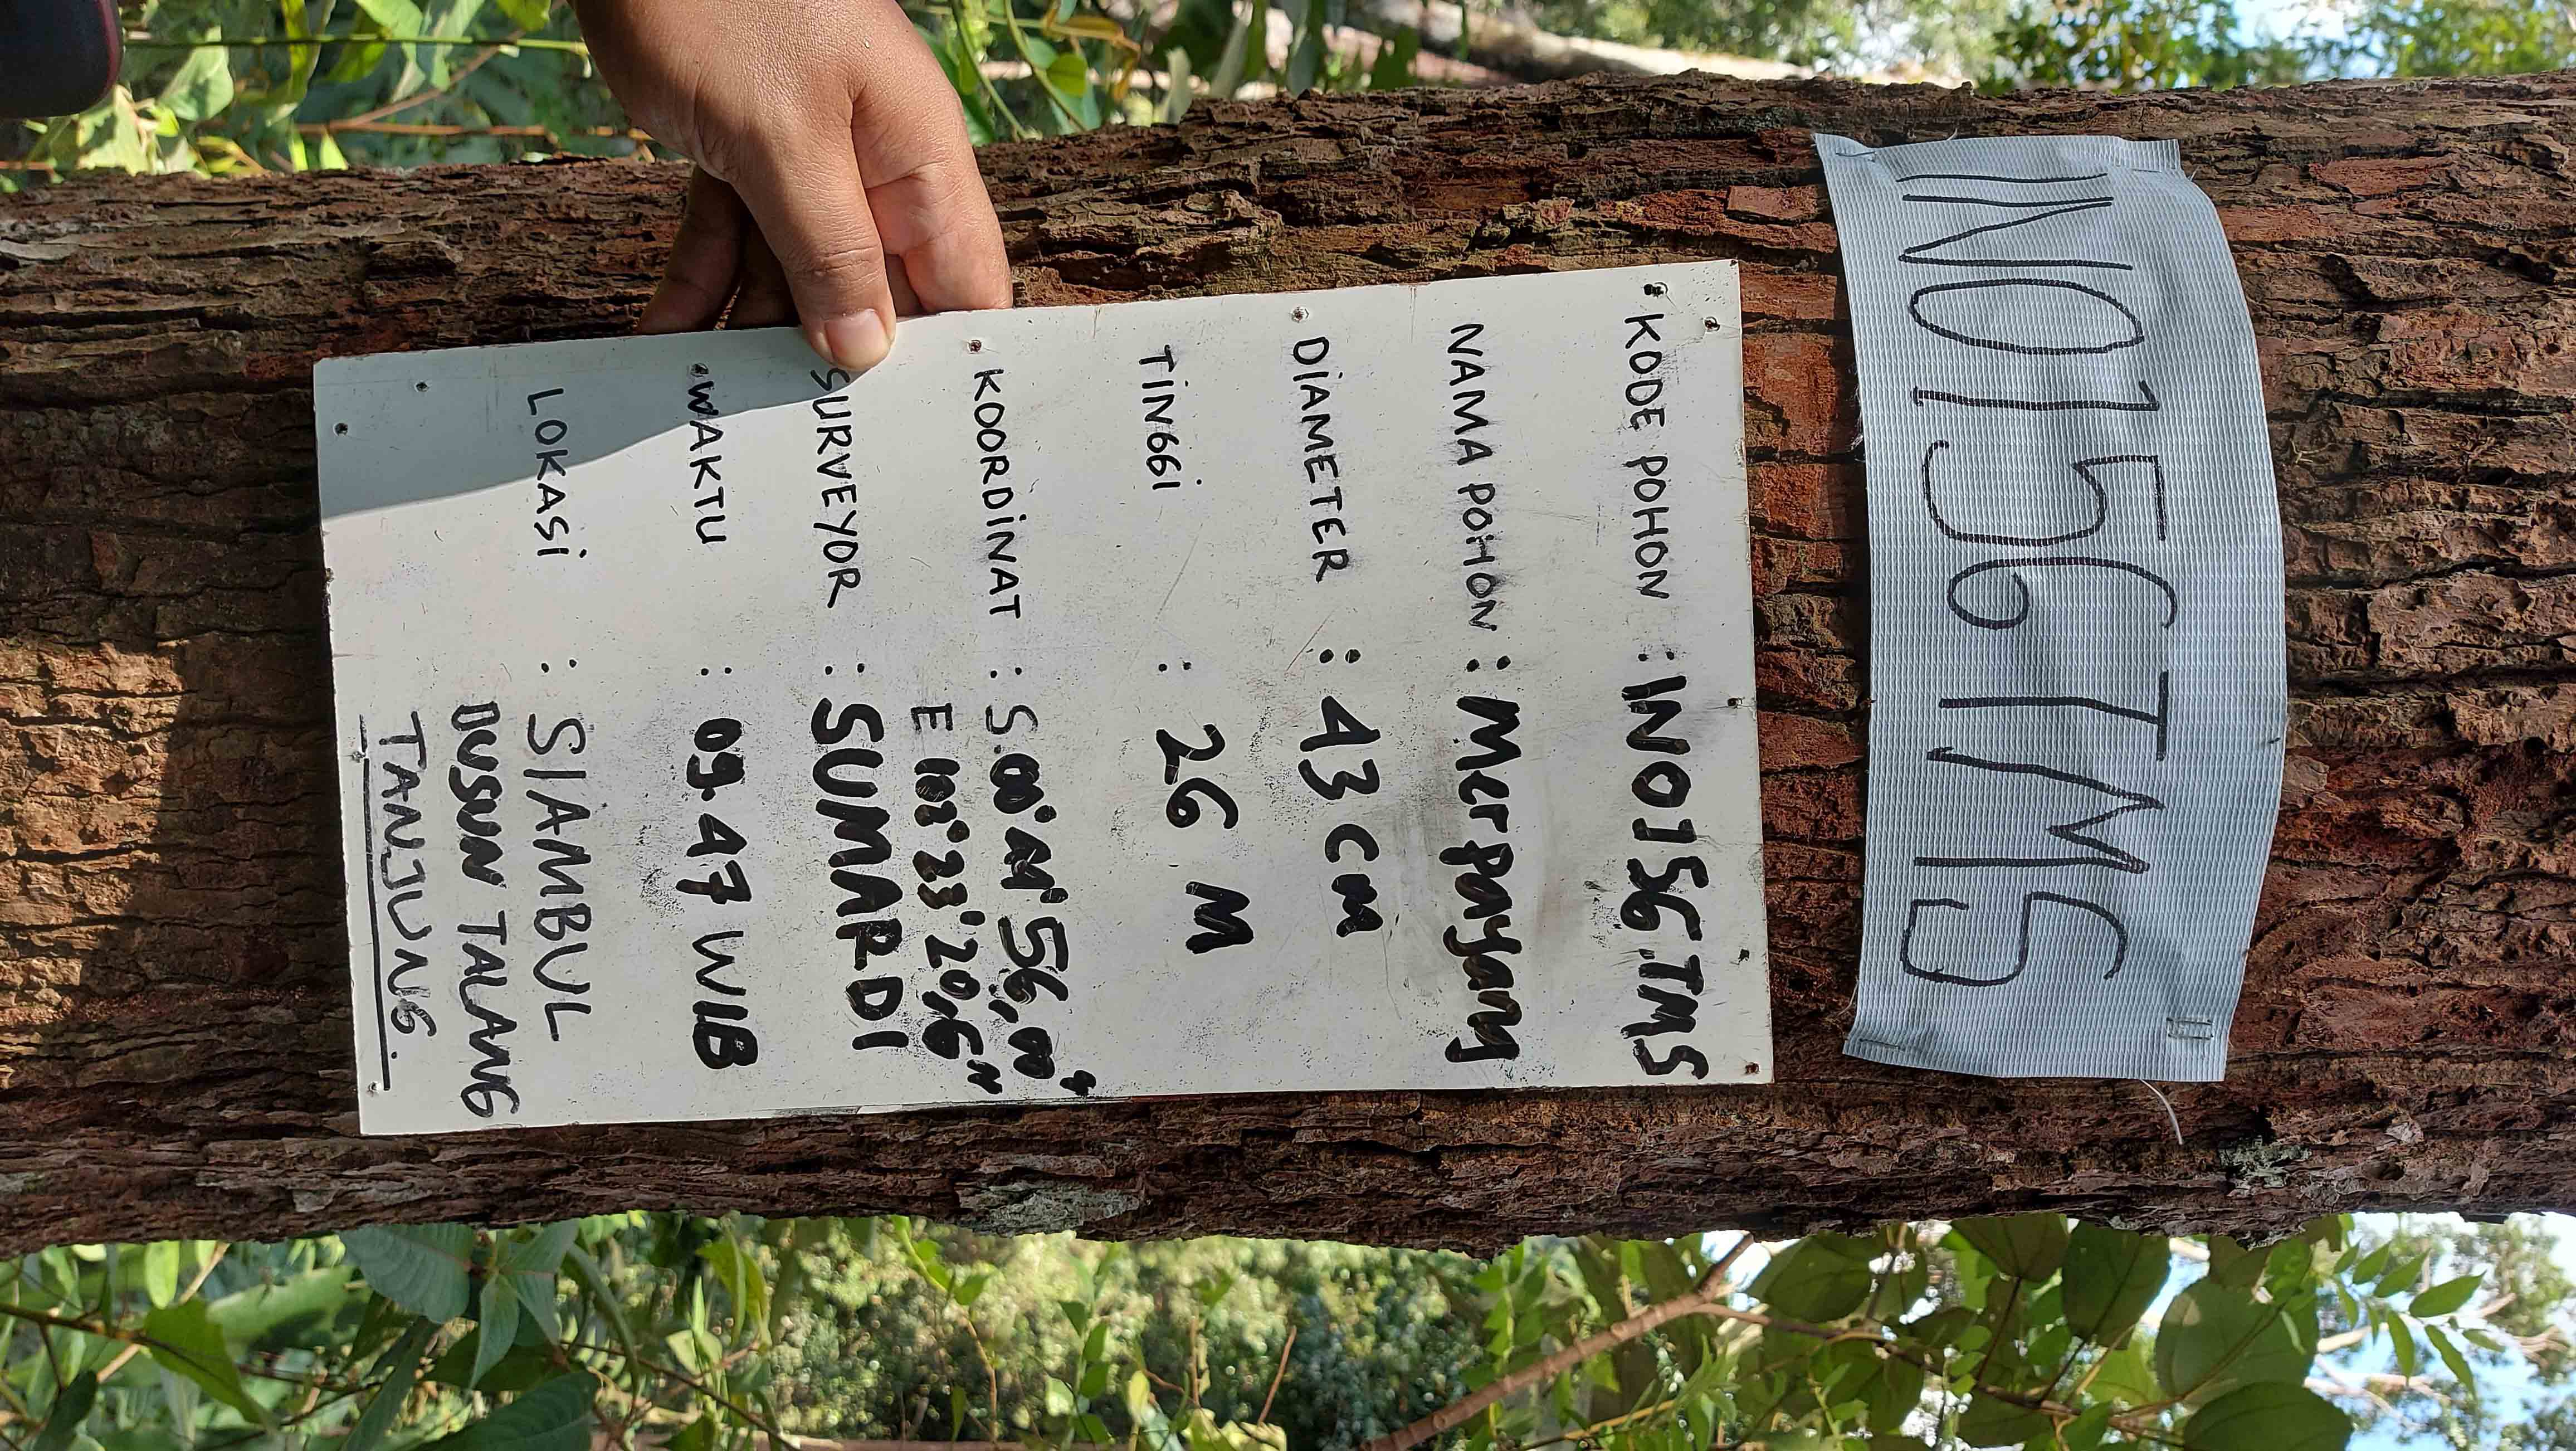 INO156TMS
KODE POHON : INO156.TMS
NAMA POHON : Merpayang
DIAMETER : 43 CM
TINGGI : 26 M
KOORDINAT : S.00°44'56,00"
E 102°23'20,6"
SURVEYOR : SUMARDI
WAKTU : 09.47 WIB
LOKASI : SIAMBUL
DUSUN TALANG
TANJUNG.